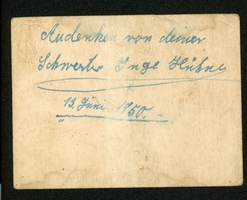 Andenken von deiner
Schwester Inge Hühne
13. Juni 1950.